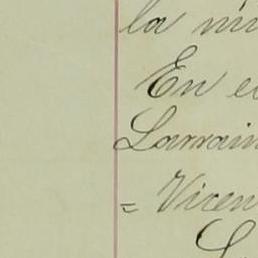 la mi
En e
Larrain
= Vicen